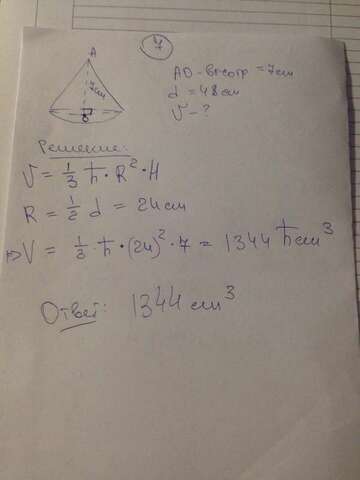 7
A
7см
О
АО-высота = 7см
d = 48см
V - ?
Решение:
V = 1/3 π · R² · H
R = 1/2 d = 24см
=> V = 1/3 · π · (24)² · 7 = 1344 π см³
Ответ: 1344 см³